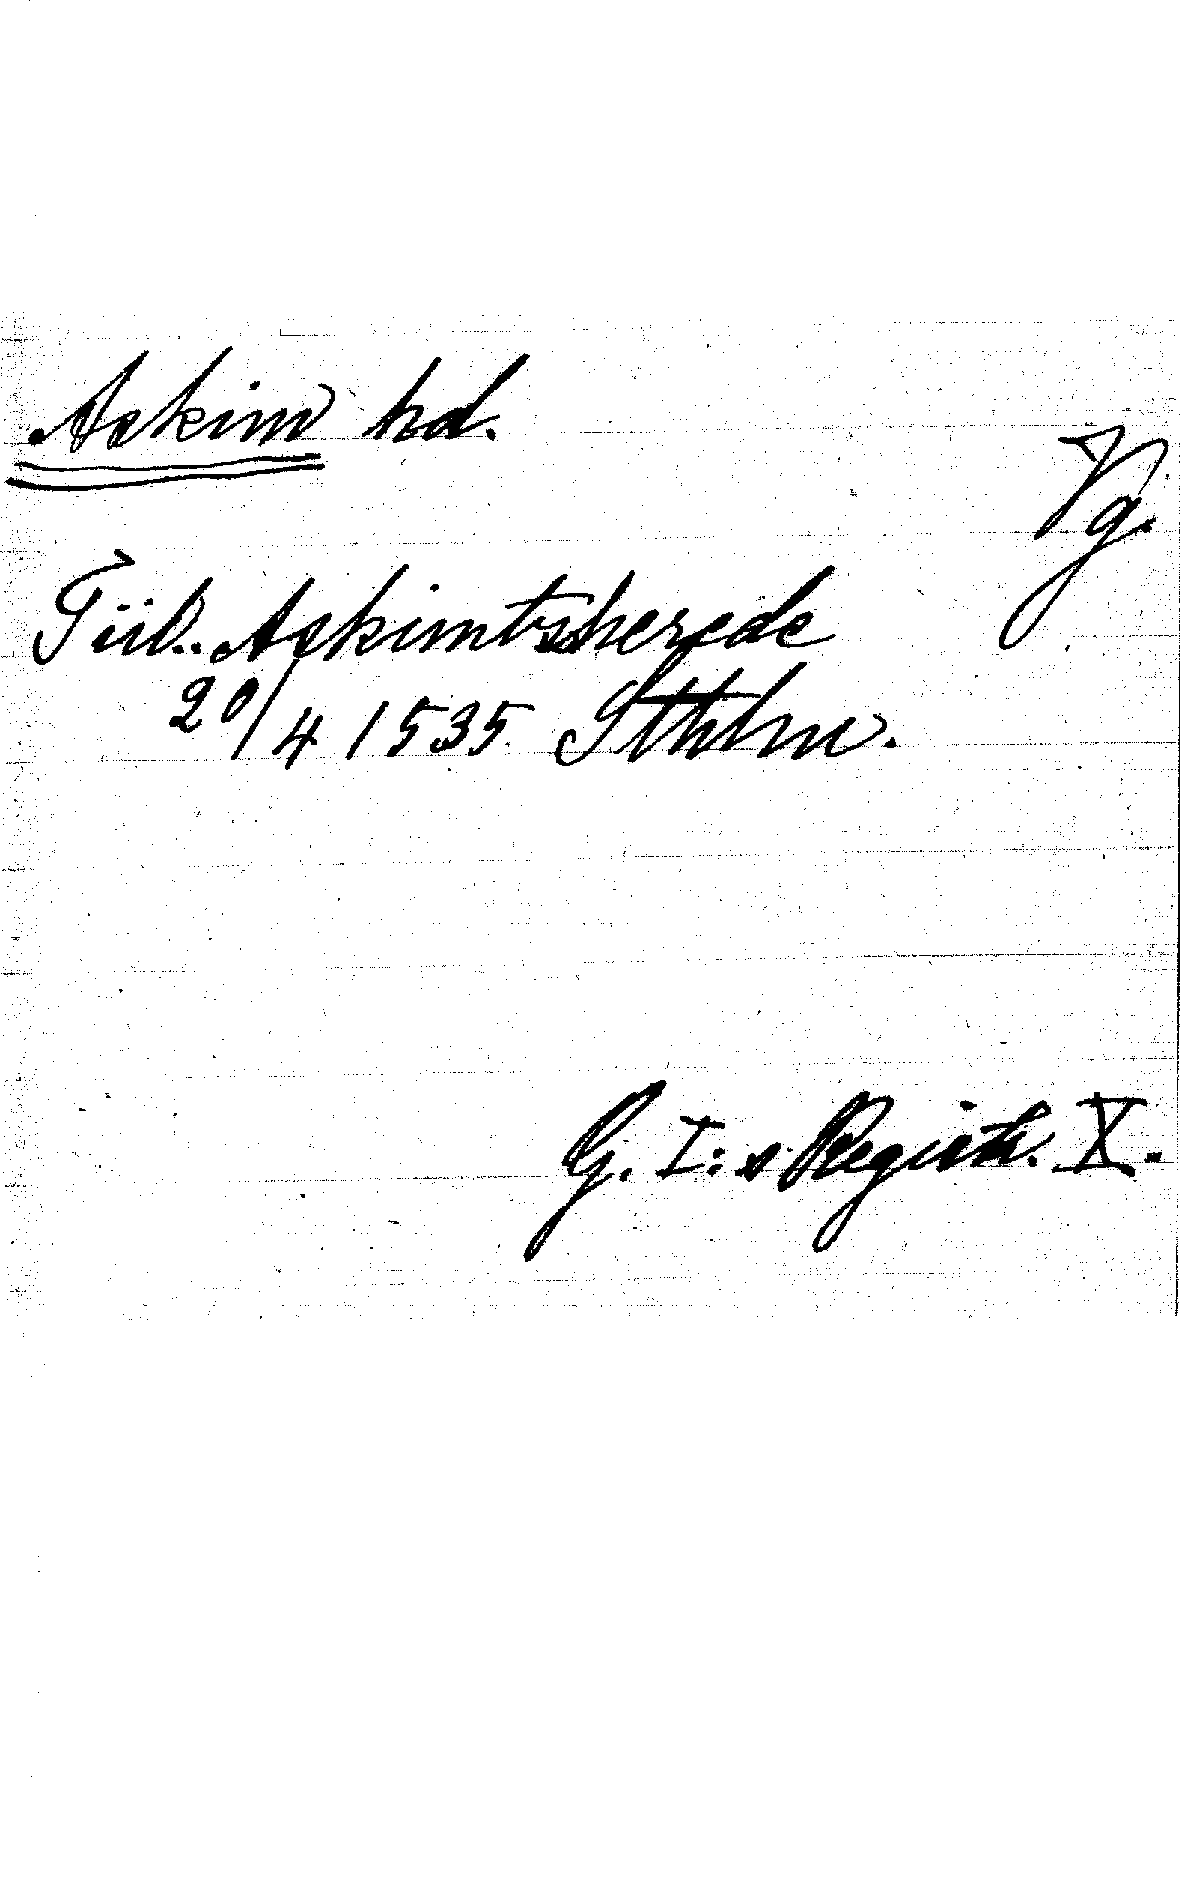 Askim hd.
Vg.
Tiil.. Askimtsherede
20/4 1535 Sthlm.
G. I:s Registr. X.